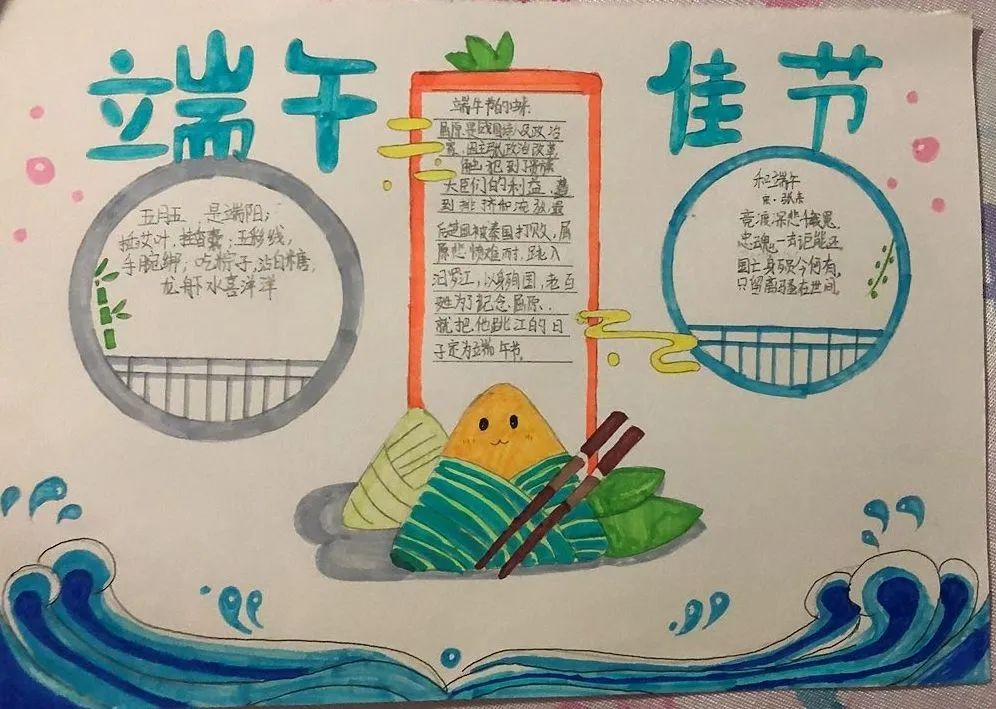 端午 佳节
五月五，是端阳；
插艾叶，挂香囊；五彩线，
手腕绑，吃粽子，沾白糖，
龙舟下水喜洋洋
端午节的由来
屈原是战国诗人及政治
家，因主张政治改革
触犯到了贵族
大臣们的利益，遭
到排挤和流放最
后楚国被秦国打败，屈
原悲愤难耐，跳入
汨罗江，以身殉国，老百
姓为了记念屈原，
就把他跳江的日
子定为端午节。
和端午
宋·张耒
竞渡深悲千载冤，
忠魂一去讵能还
国亡身殒今何有，
只留离骚在世间。